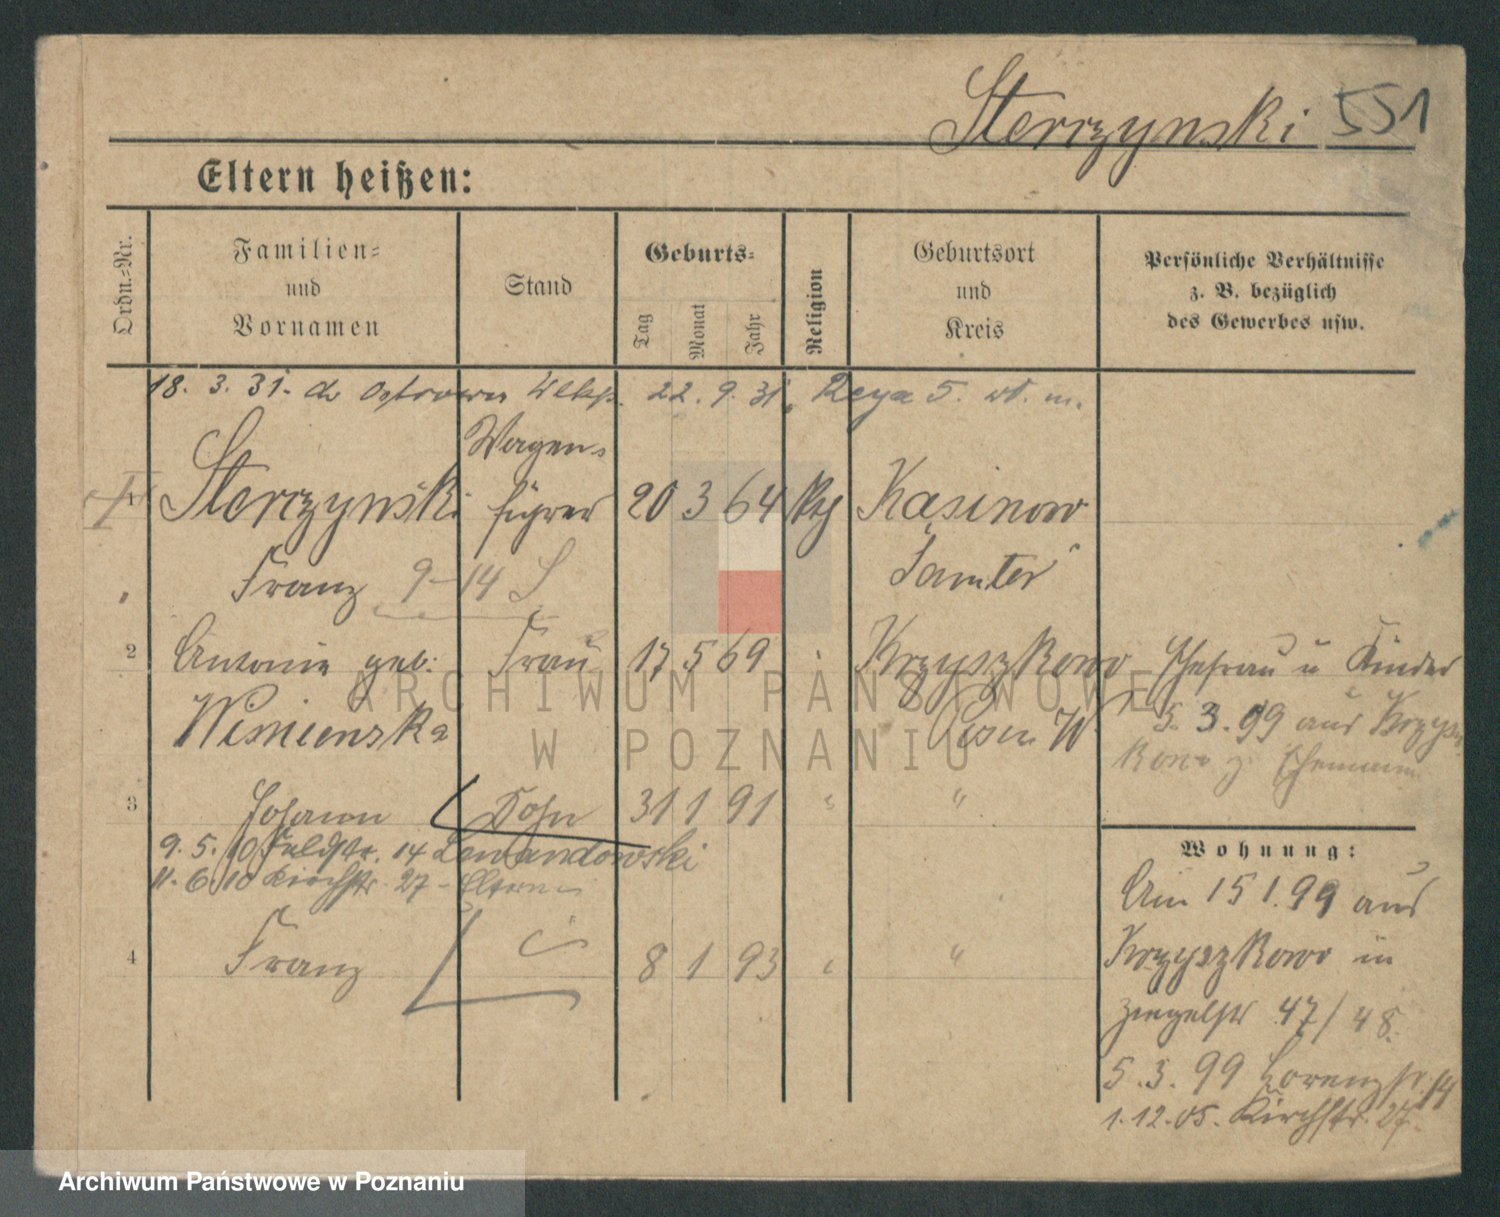 Sterczynski 551
Eltern heißen:
Ordn.-Nr.
Familien-
und
Vornamen
Stand
Geburts-
Tag
Monat
Jahr
Religion
Geburtsort
und
Kreis
Persönliche Verhältnisse
z. B. bezüglich
des Gewerbes usw.
18. 3. 31. do Ostrowa Wlkp. 22. 9. 31. Reya 5. m.
Wagen-
1 Sterczynski führer 20 3 64 Kasinowo
Franz 9-14 Samter
2 Antonie geb: Frau 17 5 69 Krzyszkowo Ehefrau u Kinder
Wisniewska Posen W 5. 3. 99 aus Krzysz
kowo z. Ehemann
3 Johann Sohn 31 1 91 "
9. 5. 10 Feldstr. 14 Lewandowski
11. 6. 10 Kirchstr. 27 - Eltern
4 Franz 8 1 93 "
Wohnung:
Am 15 1. 99 aus
Krzyszkowo in
Ziegelstr 47/48.
5. 3. 99 Lorenzstr. 14
1. 12. 05. Kirchstr. 27.
ARCHIWUM PAŃSTWOWE
W POZNANIU
Archiwum Państwowe w Poznaniu